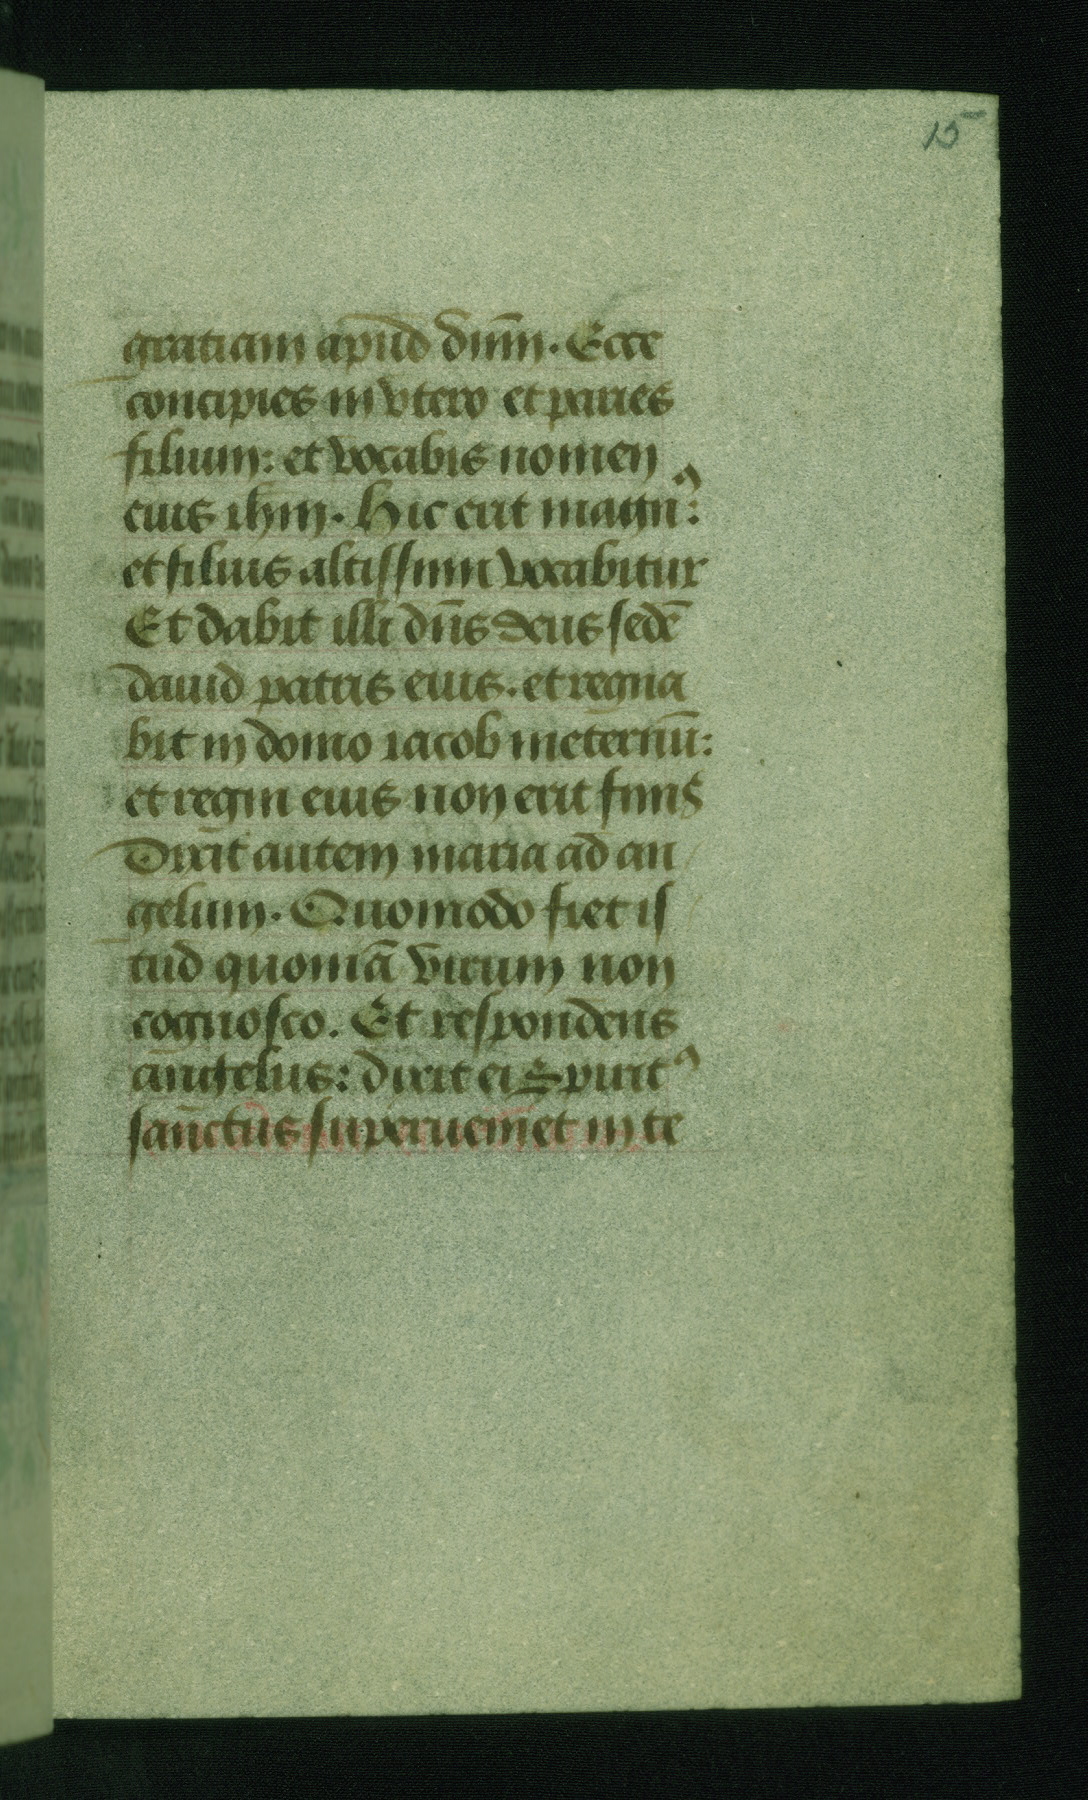 15
gratiam apud dn̄m. Ecce
concipies in vtero et paries
filium: et vocabis nomen
eius ihm̄. Hic erit magnꝰ:
et filius altissimi vocabitur
Et dabit illi dn̄s deus sedē
dauid patris eius. et regna
bit in domo iacob in eternū:
et regni eius non erit finis
Dixit autem maria ad an
gelum. Quomodo fiet is
tud quoniā virum non
cognosco. Et respondens
anghelus: dixit ei Spiritꝰ
sanctus superueniet in te